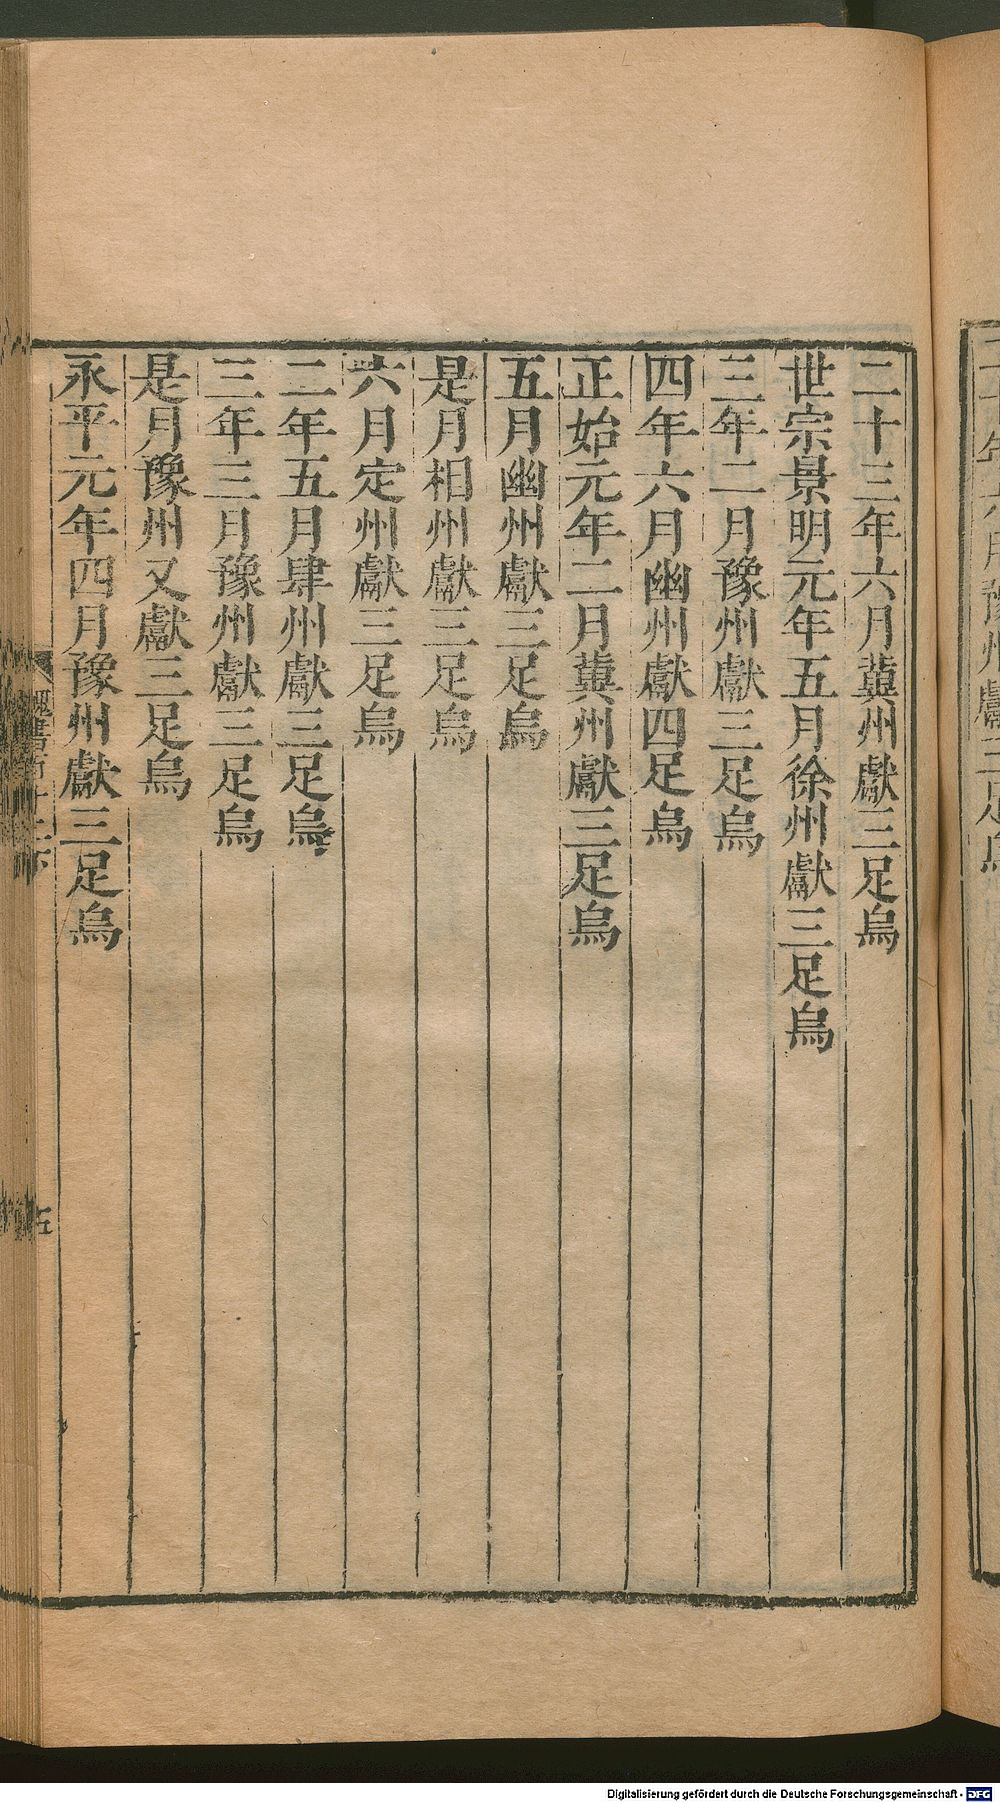 二十三年六月冀州獻三足烏
世宗景明元年五月徐州獻三足烏
三年二月豫州獻三足烏
四年六月幽州獻四足烏
正始元年二月冀州獻三足烏
五月幽州獻三足烏
是月相州獻三足烏
六月定州獻三足烏
二年五月肆州獻三足烏
三年三月豫州獻三足烏
是月豫州又獻三足烏
永平元年四月豫州獻三足烏
Digitalisierung gefördert durch die Deutsche Forschungsgemeinschaft - DFG